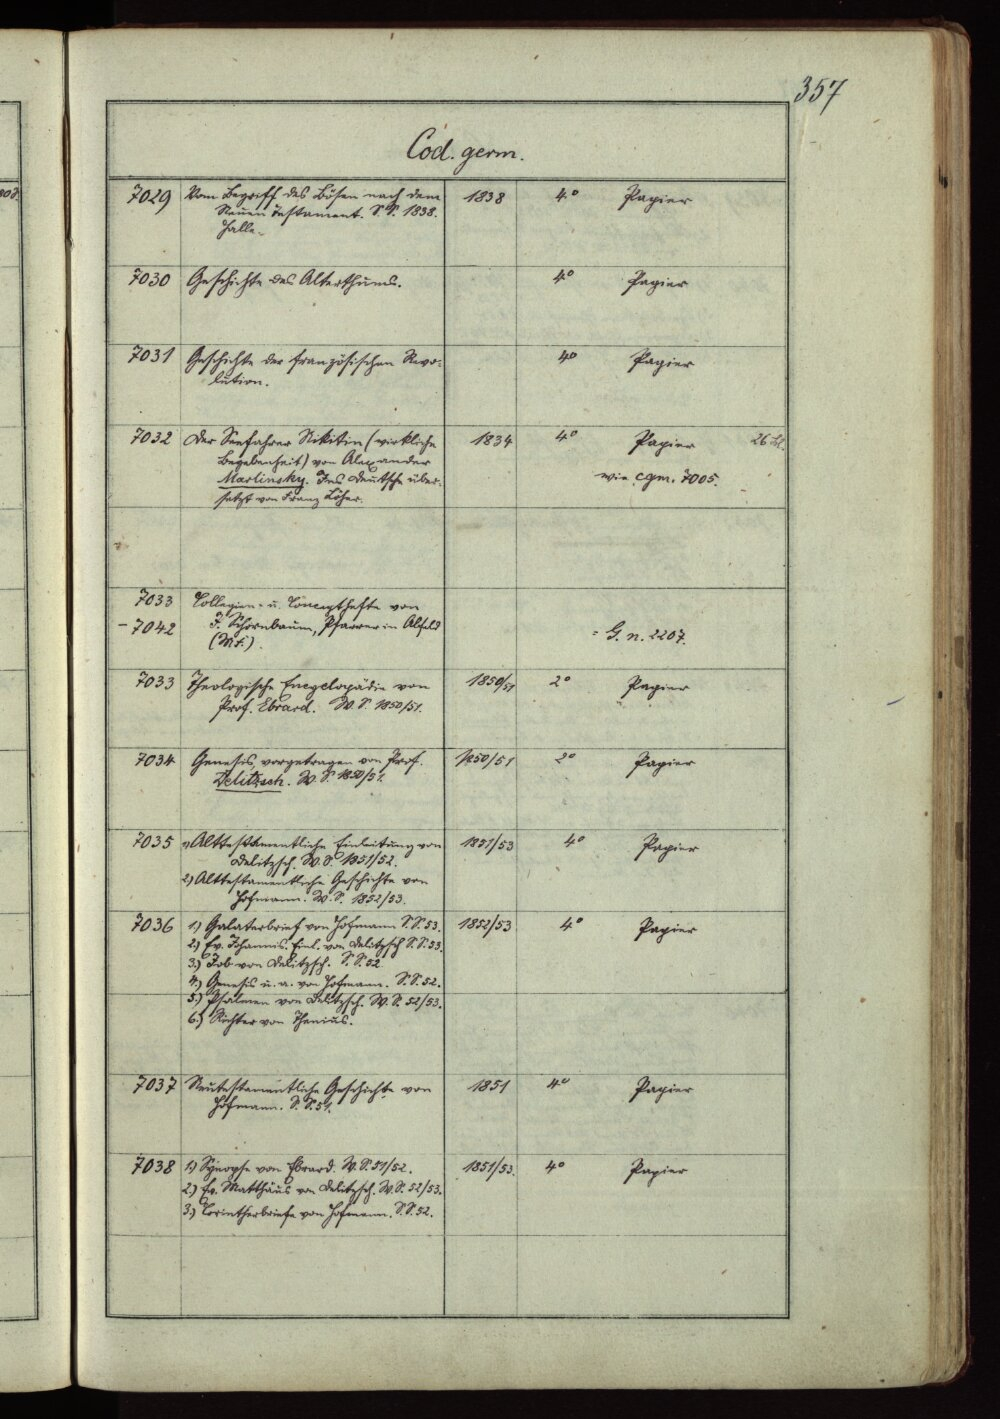 357
Cod. germ.
7029 Vom Begriff des Bösen nach dem 1838 4° Papier
Neuen Testament. S.S. 1838.
Halle.
7030 Geschichte des Alterthums. 4° Papier
7031 Geschichte der französischen Revo- 4° Papier
lution.
7032 Der Seefahrer Nikitin (wirkliche 1834 4° Papier 26 Bl.
Begebenheit) von Alexander
Marlinsky. Ins Deutsche über- wie cgm. 7005.
setzt von Franz Löher.
7033 Collegien- u. Concepthefte von
- 7042 J. Schornbaum, Pfarrer in Alfeld = G. n. 2207.
(Mf.).
7033 Theologische Encyclopädie von 1850/51 2° Papier
Prof. Ebrard. W.S. 1850/51.
7034 Genesis, vorgetragen von Prof. 1850/51 2° Papier
Delitzsch. W.S. 1850/51.
7035 1) Alttestamentliche Einleitung von 1851/53 4° Papier
Delitzsch. W.S. 1851/52.
2) Alttestamentliche Geschichte von
Hofmann. W.S. 1852/53.
7036 1.) Galaterbrief von Hofmann S.S. 53. 1852/53 4° Papier
2.) Ev. Johannis. Einl. von Delitzsch S.S. 53.
3.) Job von Delitzsch. S.S. 52
4.) Genesis u. a. von Hofmann. S.S. 52.
5.) Psalmen von Delitzsch. W.S. 52/53.
6.) Richter von Thenius.
7037 Neutestamentliche Geschichte von 1851 4° Papier
Hofmann. S.S. 51.
7038 1.) Synopse von Ebrard. W.S. 51/52. 1851/53. 4° Papier
2.) Ev. Matthäus von Delitzsch. W.S. 52/53.
3.) Corintherbriefe von Hofmann. S.S. 52.